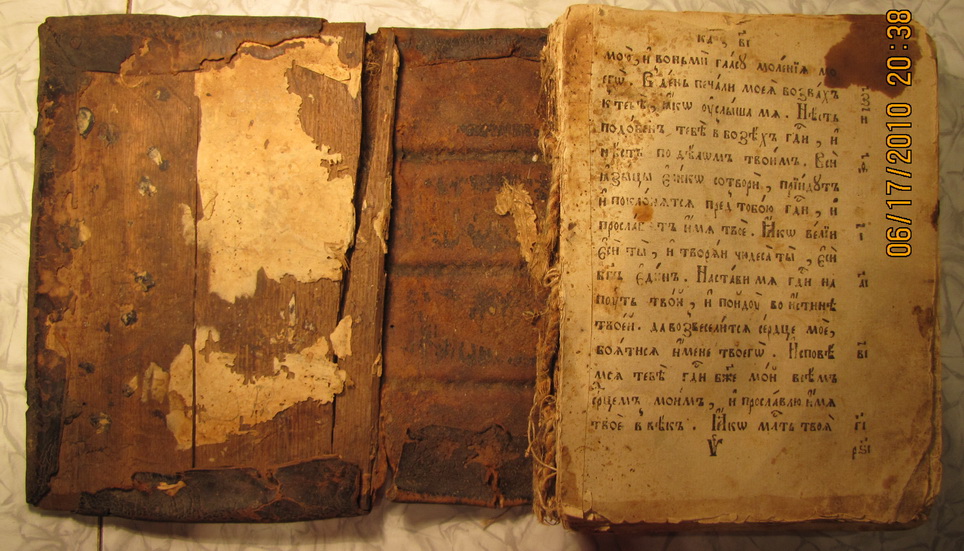 моеѧ́ и҆ вонмѝ гла́су моле́нїѧ мо
егѡ̀. В де́нь печа́ли моеѧ̀ воззва́хъ
к тебѣ̀, ꙗ҆́кѡ ᲂу҆слы́ша мѧ. Нѣ́сть
подо́бенъ тебѣ̀ в бозѣ́хъ гд҇и, и҆
нѣ́сть по дѣлѡ́мъ твои́мъ. Всѝ
ꙗ҆зы́цы є҆ли́кѡ сотворѝ, прїи́дутъ
и҆ покло́нѧтсѧ пред̾ тобо́ю гд҇и, и҆
просла тъ и҆́мѧ твоѐ. Ꙗ҆́кѡ ве́лїи
є҆сѝ ты̀, и҆ творѧ́и чюдеса̀ ты̀, є҆сѝ
бг҃ъ є҆ди́нъ. Наста́ви мѧ гд҇и на
пꙋ́ть тво́й, и҆ пойдꙋ̀ во и҆́стинѣ
твое́й. да возвесели́тсѧ се́рдце моѐ,
боѧ́тисѧ и҆́мене твоегѡ̀. И҆сповѣ́
мсѧ тебѣ̀ гд҇и бж҃е мо́й всѣ́мъ
се́рцемъ мои́мъ, и҆ просла́влю и҆́мѧ
твоѐ в вѣ́къ. Ꙗ҆́кѡ мл҇ть твоѧ̀
06/17/2010 20:38